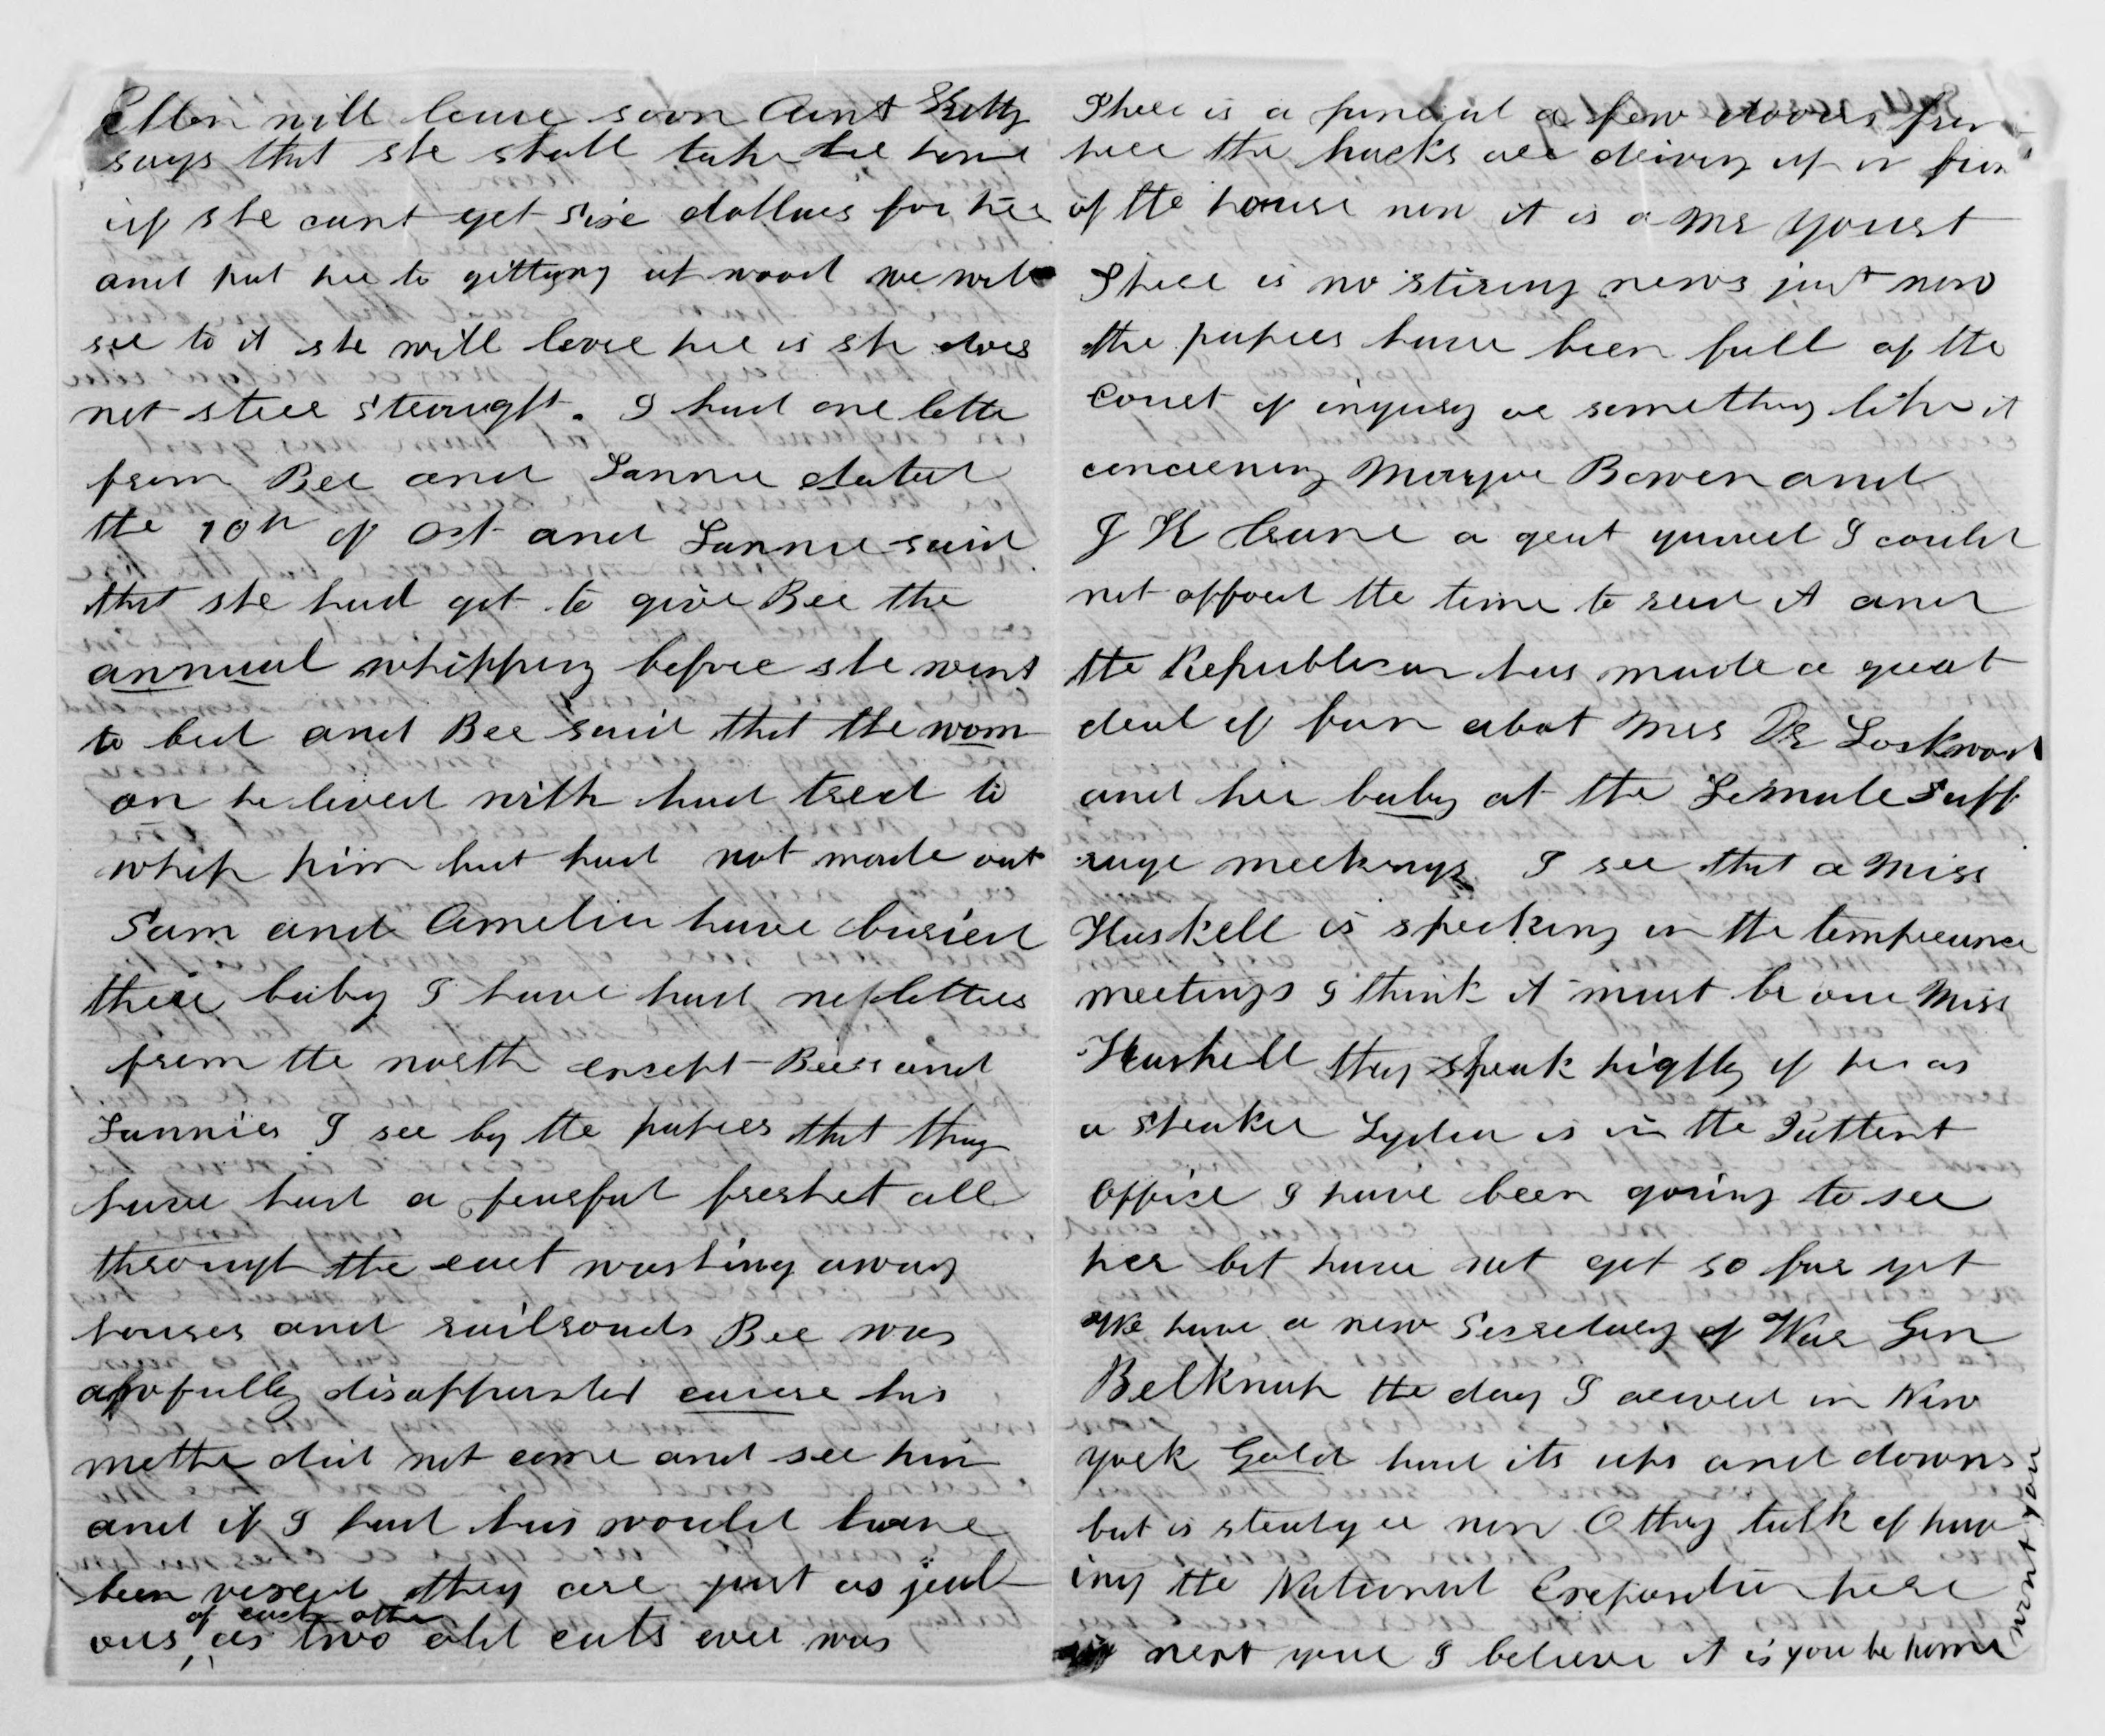 Ellen will leave soon Aunt Hetty
says that she shall take her home
if she cant get sixe dollars for her
and put her to gitting up wood we will
see to it she will leave here is she does
not steer straught. I had one lette
from Bee and Fannie dated
the 10th of Oct and Fannie said
that she had got to give Bee the
annual whipping before she went
to bed and Bee said that the wom
an he lived with had tred to
whip him but had not made out
Sam and Amelia have buried
their baby I have had no letters
from the north except Bees and
Fannies I see by the papers that they
have had a fearful freshet all
through the east washing away
houses and railroads Bee was
awfully disappointed cause his
mothe did not come and see him
and if I had his would have
been vexed they are just as jeal
ous of each othe as two old cats ever was
There is a funeral a few doors from
here the hacks are driving up in frun
of the house now it is a Mr Yourst
There is no stiring news just now
the papers have been full of the
Couret of inquiry or something like it
concerning Mayor Bowen and
J H Crane a great quarrel I could
not afford the time to read it and
the Republican has made a great
deal of fun abot Mrs Dr Lockwood
and her baby at the Female Suff
rage meetings I see that a Miss
Haskell is speeking in the temperance
meetings I think it must be our Miss
Haskell they speak highly of her as
a speaker Lydia is in the Pattent
Office I have been going to see
her bet have not got so far yet
We have a new Secretary of War Gen
Belknap the day I arived in New
York Gold had its ups and downs
but is steadyer now O they talk of hav
ing the National Exposition here
next year I believe it is you be home
wont you